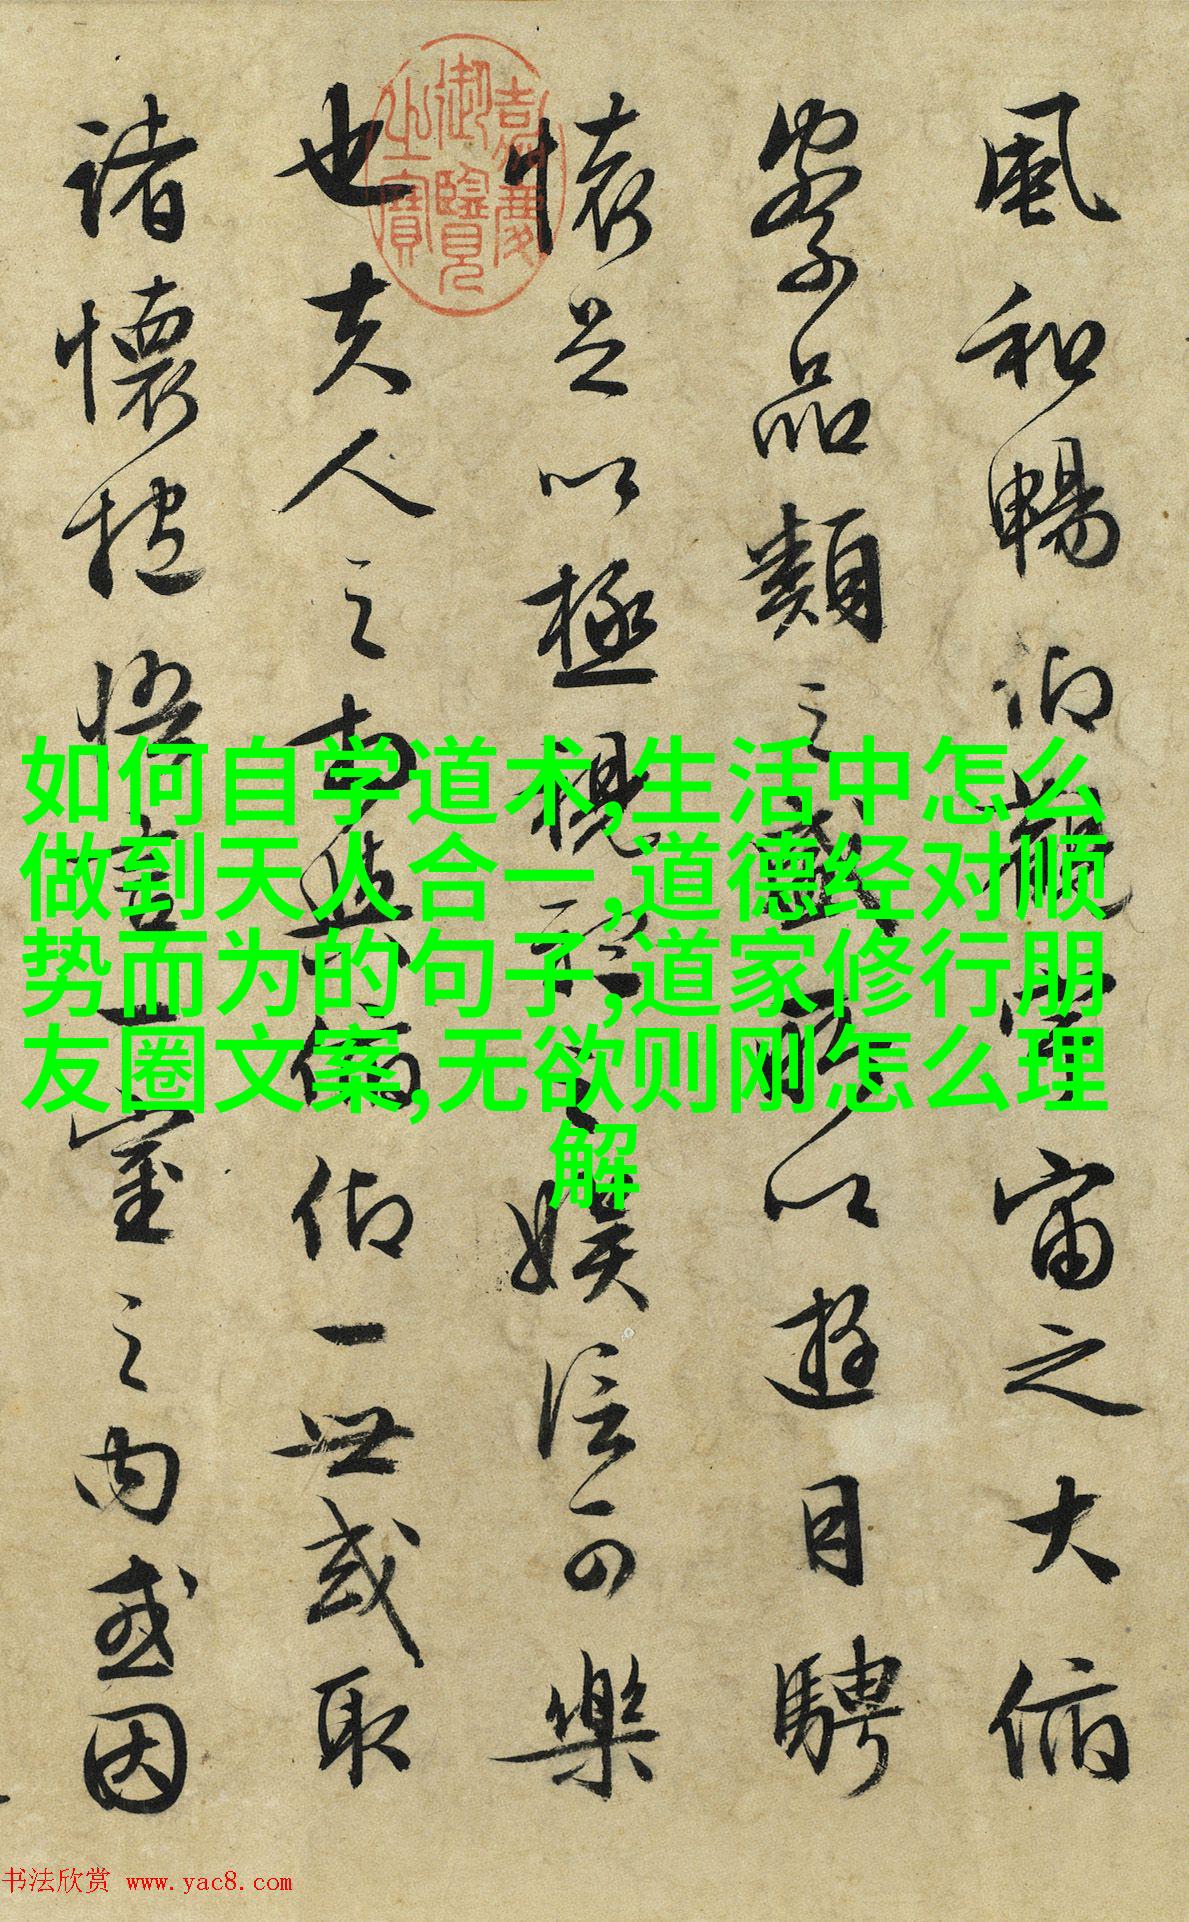 風和暢仰觀宇宙之大俯
察品類之盛所以遊目騁
懷足以極視聽之娛信可樂
也夫人之相與俯仰一世或取
諸懷抱悟言一室之內或因
嘉慶御覽之寶
如何自学道术,生活中怎么
做到天人合一,道德经对顺
势而为的句子,道家修行朋
友圈文案,无欲则刚怎么理
解
书法欣赏 www.yac8.com